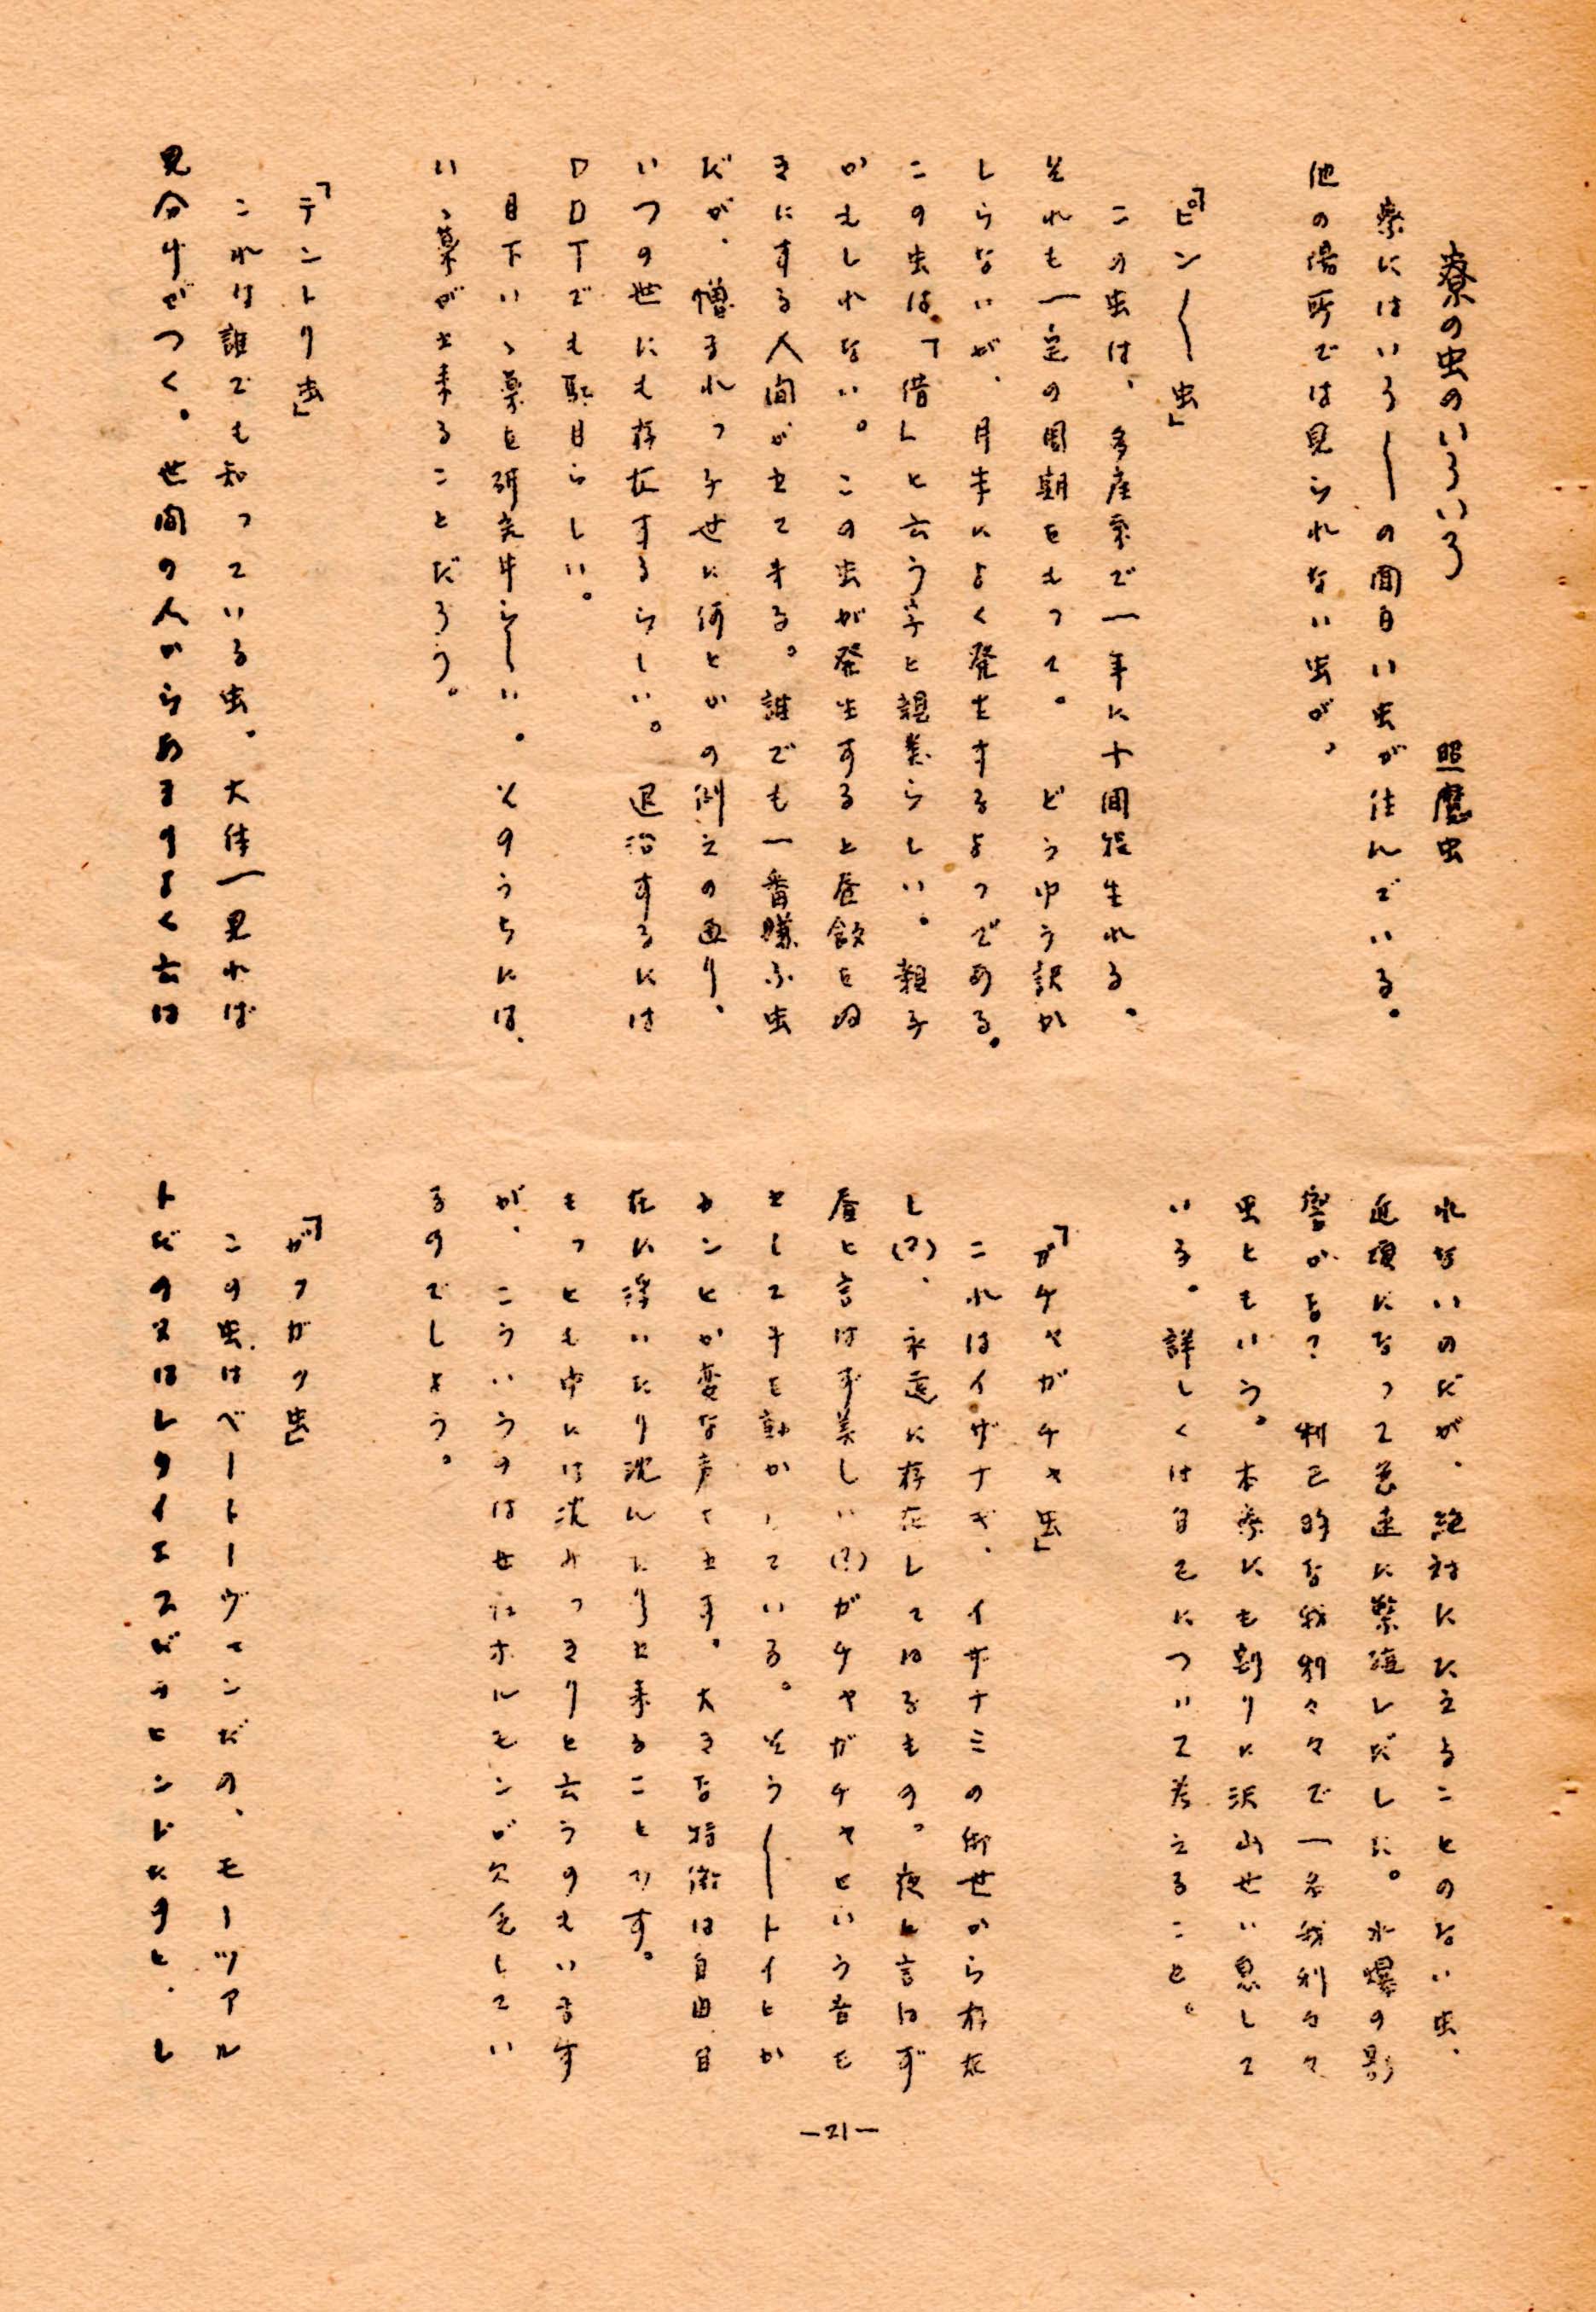 寮の虫のいろいろ　照魔虫
寮にはいろ〳〵の面白い虫が住んでいる。
他の場所では見られない虫が、
「ピン〳〵虫」
この虫は、多産系で一年に十回程生れる。
それも一定の周期をもって。どうゆう訳か
しらないが、月末によく発生するようである。
この虫は「借」と云う字と親類らしい。親子
かもしれない。この虫が発生すると昼飯をぬ
きにする人間がでてくる。誰でも一番嫌ふ虫
だが、憎まれっ子世に何とかの例えの通り、
いつの世にも存在するらしい。退治するには
DDTでも駄目らしい。
目下いゝ薬を研究中らしい。そのうちには、
いゝ薬が出来ることだろう。
「テントリ虫」
これは誰でも知っている虫。大体一見れば
見分けがつく。世間の人からあまりよく云は
れないのだが、絶対にたえることのない虫、
近頃になって急速に繁殖しだした。水爆の影
響かな？利己的な我利々々で一名我利々々
虫ともいう。本寮にも割りに沢山せい息して
いる。詳しくは自己について考えること。
「ガチャガチャ虫」
これはイザナギ、イザナミの御世から存在
し(？)、永遠に存在してはるもの。夜と言はず
昼と言はず美しい(？)ガチャガチャという音を
出して手を動かしている。そう〳〵トイとか
カンとか変な声も出す。大きな特徴は自由自
在に浮いたり沈んだり出来ることです。
もっとも中には沈みっきりと云うのもいます
が、こういうのは世渡ホルモンが欠乏してい
るのでしょう。
「ガクガク虫」
この虫はベートーヴェンだの、モーツアル
トだの又はレクイエスがうとンドだのと、し
—21—